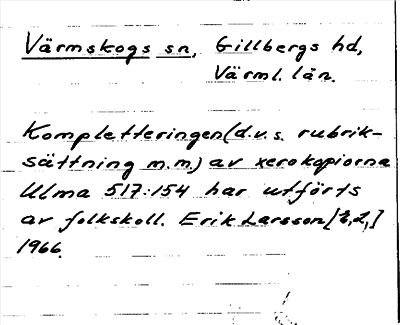 Värmskogs sn, Gillbergs hd,
Värml. län.
Kompletteringen (d.v.s. rubrik-
sättning m.m.) av xerokopiorna
Ulma 517:154 har utförts
av folkskoll. Erik Larsson
1966.